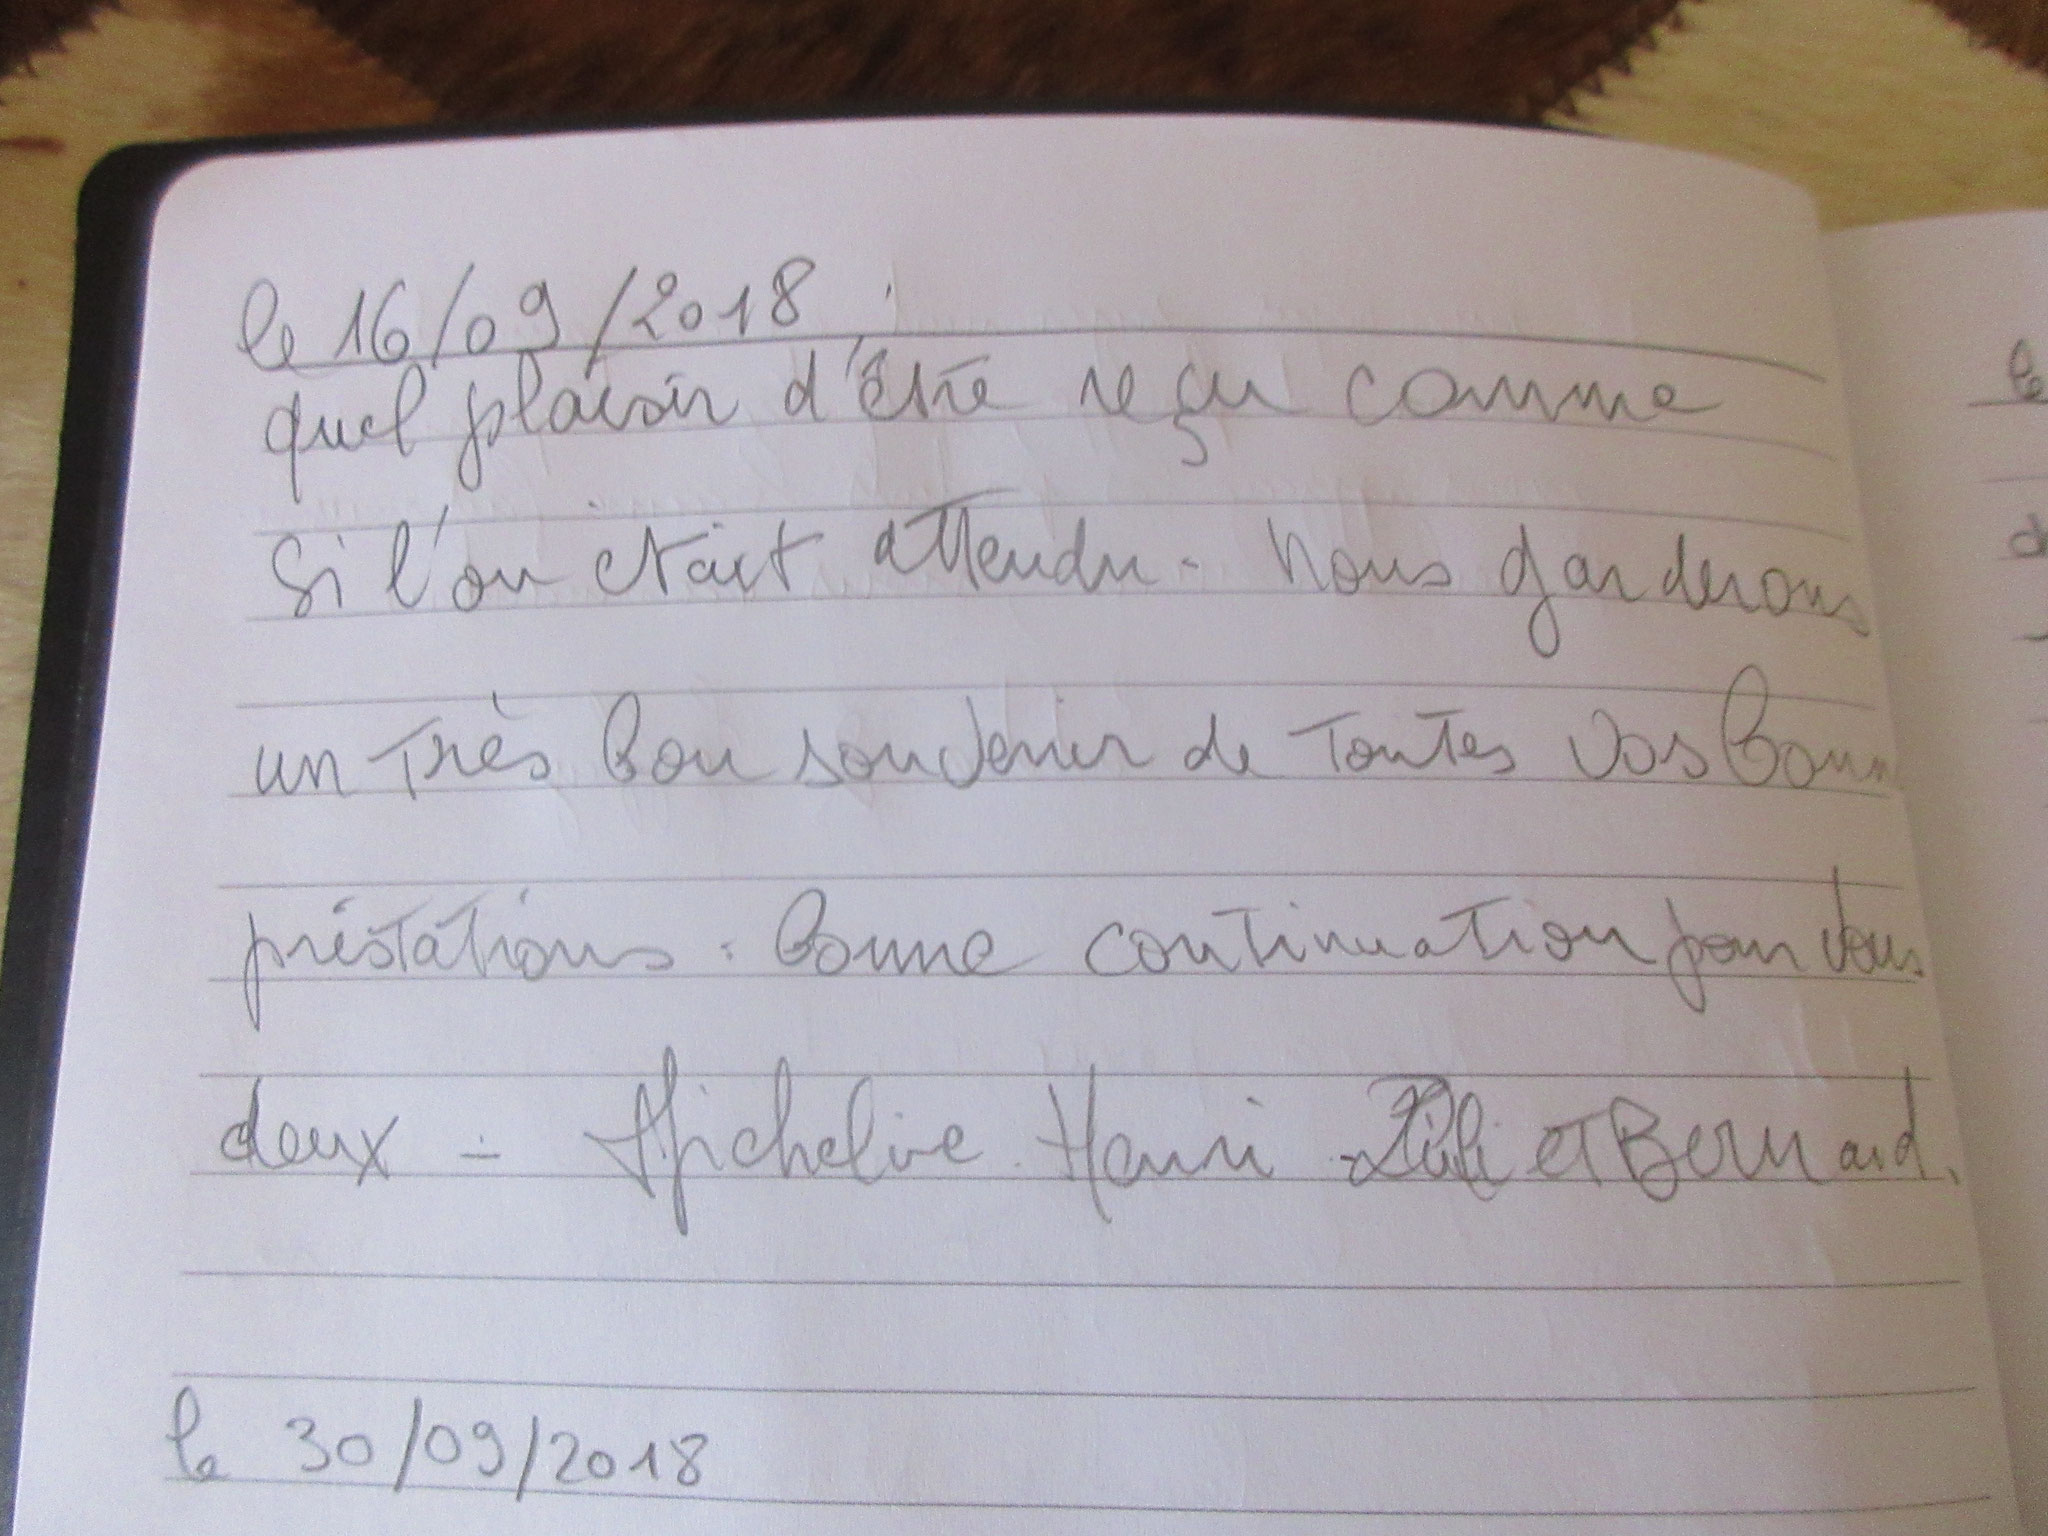 le 16/09/2018
quel plaisir d'être reçu comme
si l'on etait attendu. Nous garderons
un très bon souvenir de toutes vos bonn
préstations. bonne continuation pour vous
deux - Micheline. Henri Lili et Bernard.
le 30/09/2018
le